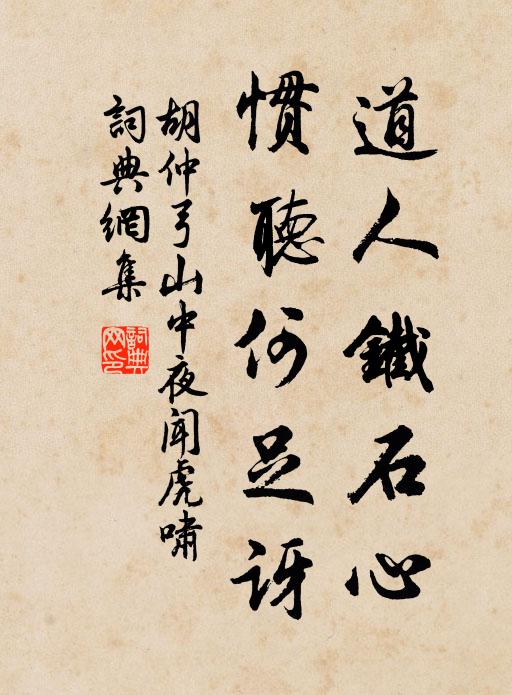 道人鐵石心
慣聽何足訝
胡仲弓山中夜聞虎嘯
詞典網集
詞典網印